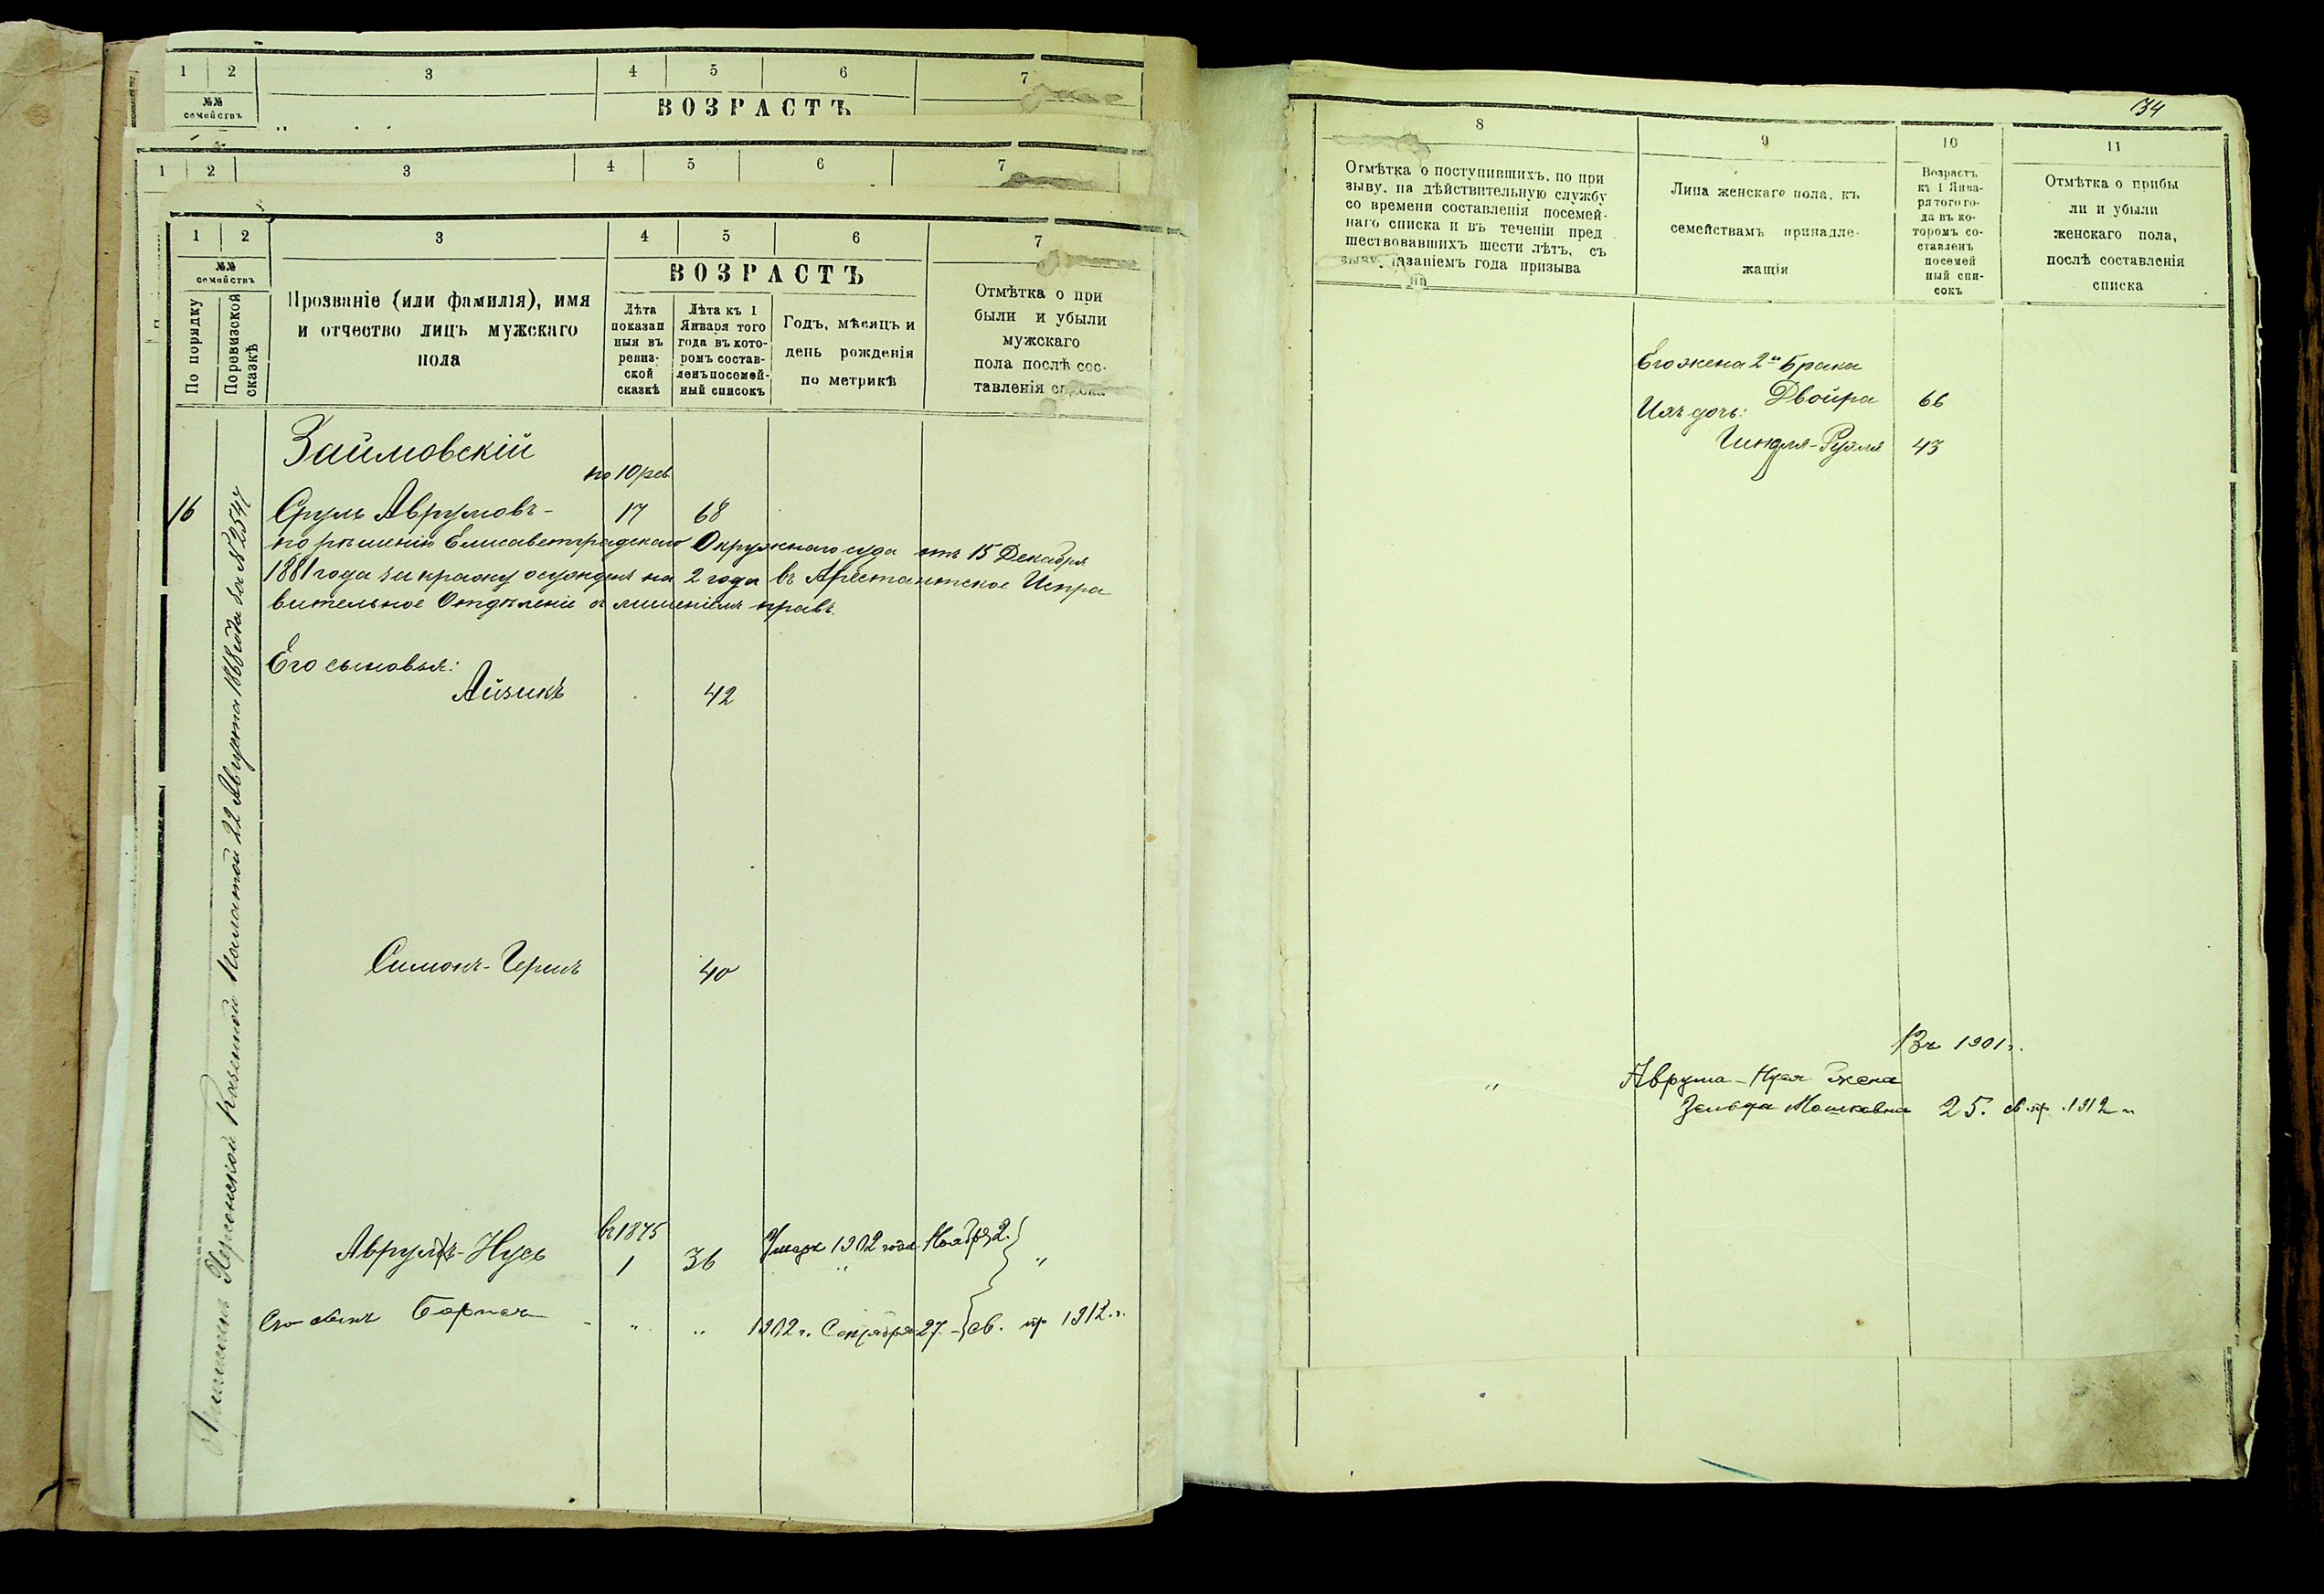 1 2 3 4 5 6 7
№№ семействъ
ВОЗРАСТЪ
1 2 3 4 5 6 7
1 2 3 4 5 6 7
№№ семействъ
По порядку
По ревизской сказкѣ
Прозваніе (или фамилія), имя
и отчество лицъ мужскаго
пола
ВОЗРАСТЪ
Лѣта
показан
ныя въ
ревиз-
ской
сказкѣ
Лѣта къ 1
Января того
года въ кото-
ромъ состав-
ленъ посемей-
ный списокъ
Годъ, мѣсяцъ и
день рожденія
по метрикѣ
Отмѣтка о при
были и убыли
мужскаго
пола послѣ сос-
тавленія списка
Займовскій
по 10 рев.
16 Сруль Аврумовъ - 17 68
по рѣшенію Елисаветградскаго Окружнаго суда отъ 15 Декабря
1881 года за кражу осужденъ на 2 года въ Арестантское Испра
вительное Отдѣленіе съ лишеніемъ правъ.
Его сыновья:
Айзикъ 42
Симонъ-Гершъ 40
въ 1875
Аврумъ-Нусь 1 36 Умеръ 1902 года Ноября 2. "
Его сынъ - " " 1902 г. Сентября 27 - св. пр 1912 г.
Херсонской Казенной Палатой 22 Августа 1868 года за № 2547
134
8 9 10 11
Отмѣтка о поступившихъ, по при
зыву, на дѣйствительную службу
со времени составленія посемей-
наго списка и въ теченіи пред
шествовавшихъ шести лѣтъ, съ
указаніемъ года призыва
Лица женскаго пола, къ
семействамъ принадле-
жащія
Возрастъ
къ 1 Янва-
ря того го-
да въ ко-
торомъ со-
ставленъ
посемей
ный спи-
сокъ
Отмѣтка о прибы
ли и убыли
женскаго пола,
послѣ составленія
списка
Его жена 2го брака
Двойра 66
Ихъ дочь:
Гиндля-Рухля 43
Въ 1901 г.
" Аврума-Нуся жена
Зельда Мошковна 25. св. пр. 1912 г.